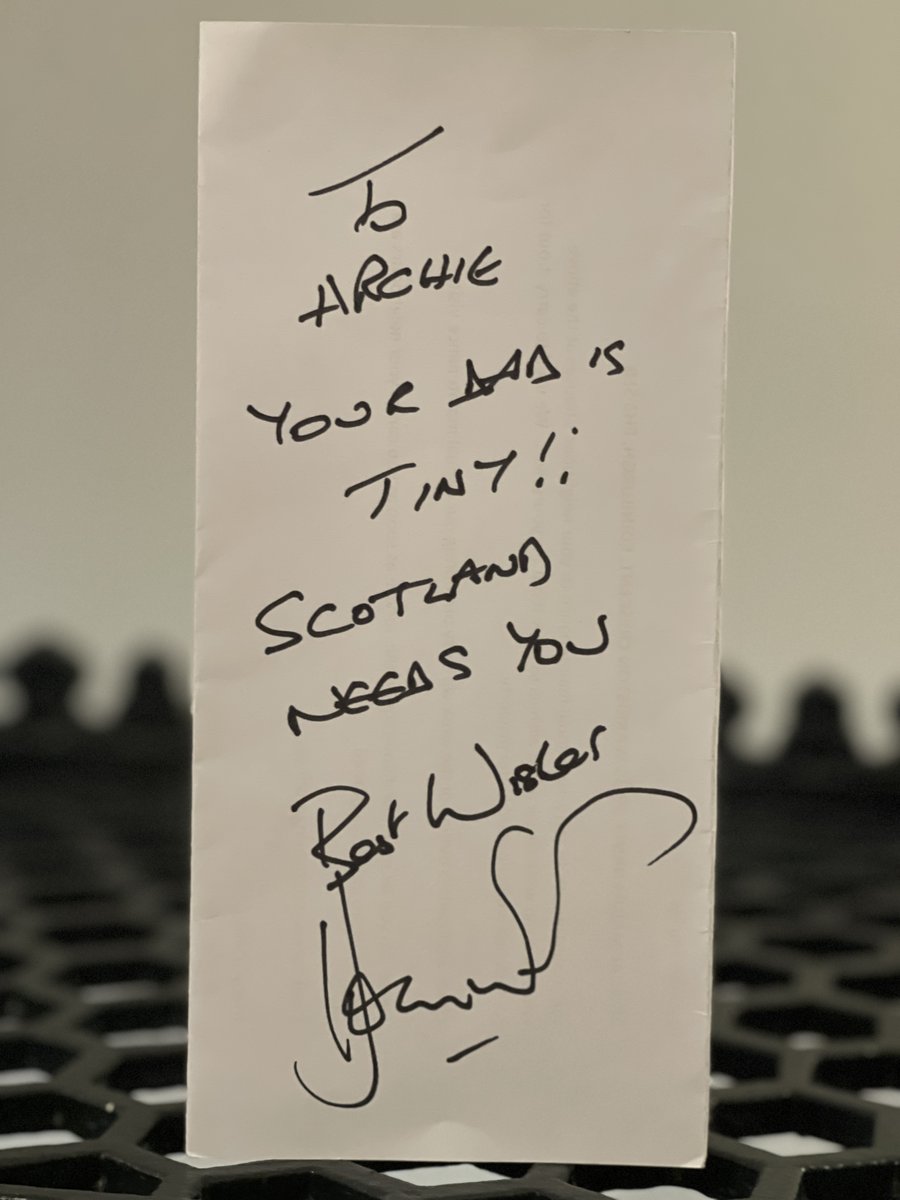 To
ARCHIE
YOUR DAD IS
TINY!!
SCOTLAND
NEEDS YOU
Best Wishes